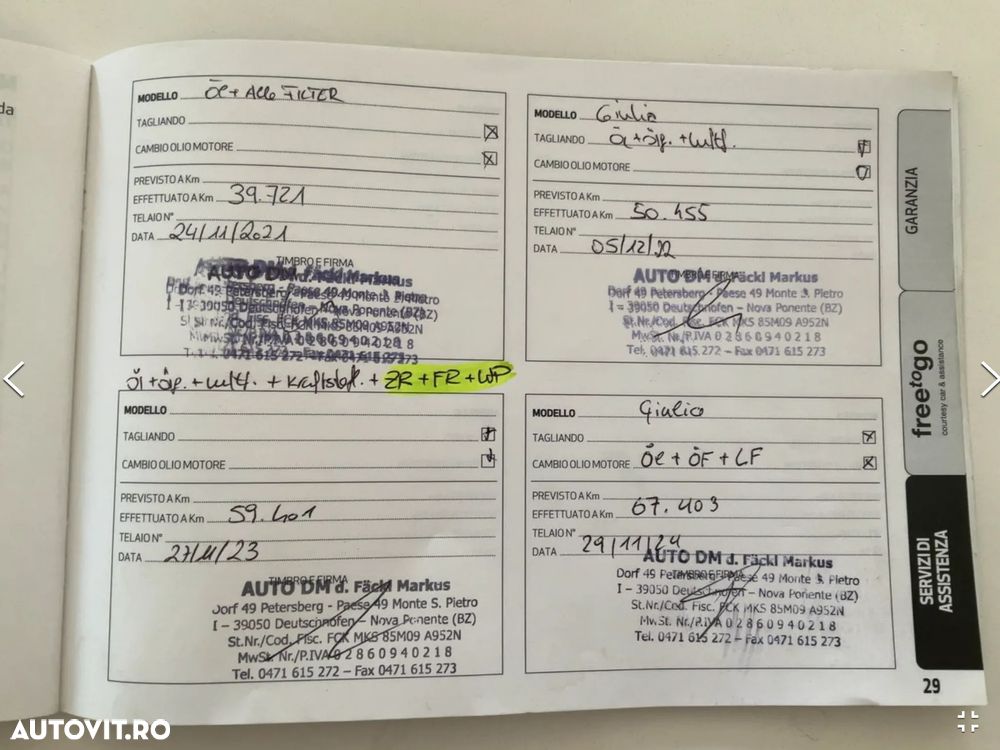 da
MODELLO Öl + Alle FILTER
TAGLIANDO
CAMBIO OLIO MOTORE
PREVISTO A Km
EFFETTUATO A Km 39.721
TELAIO N°
DATA 24/11/2021
TIMBRO E FIRMA
AUTO DM d. Fäckl Markus
Dorf 49 Petersberg - Paese 49 Monte S. Pietro
I - 39050 Deutschnofen - Nova Ponente (BZ)
St.Nr./Cod. Fisc. FCK MKS 85M09 A952N
MwSt. Nr./P.IVA 0 2 8 6 0 9 4 0 2 1 8
Tel. 0471 615 272 - Fax 0471 615 273
MODELLO Giulia
TAGLIANDO Öl + Ölf. + Luftf.
CAMBIO OLIO MOTORE
PREVISTO A Km
EFFETTUATO A Km 50.455
TELAIO N°
DATA 05/12/22
TIMBRO E FIRMA
AUTO DM d. Fäckl Markus
Dorf 49 Petersberg - Paese 49 Monte S. Pietro
I - 39050 Deutschnofen - Nova Ponente (BZ)
St.Nr./Cod. Fisc. FCK MKS 85M09 A952N
MwSt. Nr./P.IVA 0 2 8 6 0 9 4 0 2 1 8
Tel. 0471 615 272 - Fax 0471 615 273
Öl + Ölf. + Luftf. + Kraftstoff. + ZR + FR + WP
MODELLO
TAGLIANDO
CAMBIO OLIO MOTORE
PREVISTO A Km
EFFETTUATO A Km 59.401
TELAIO N°
DATA 27/11/23
TIMBRO E FIRMA
AUTO DM d. Fäckl Markus
Dorf 49 Petersberg - Paese 49 Monte S. Pietro
I - 39050 Deutschnofen - Nova Ponente (BZ)
St.Nr./Cod. Fisc. FCK MKS 85M09 A952N
MwSt. Nr./P.IVA 0 2 8 6 0 9 4 0 2 1 8
Tel. 0471 615 272 - Fax 0471 615 273
MODELLO Giulia
TAGLIANDO
CAMBIO OLIO MOTORE Öl + ÖF + LF
PREVISTO A Km
EFFETTUATO A Km 67.403
TELAIO N°
DATA 29/11/24
TIMBRO E FIRMA
AUTO DM d. Fäckl Markus
Dorf 49 Petersberg - Paese 49 Monte S. Pietro
I - 39050 Deutschnofen - Nova Ponente (BZ)
St.Nr./Cod. Fisc. FCK MKS 85M09 A952N
MwSt. Nr./P.IVA 0 2 8 6 0 9 4 0 2 1 8
Tel. 0471 615 272 - Fax 0471 615 273
GARANZIA
freetogo
courtesy car & assistance
SERVIZI DI
ASSISTENZA
29
AUTOVIT.RO